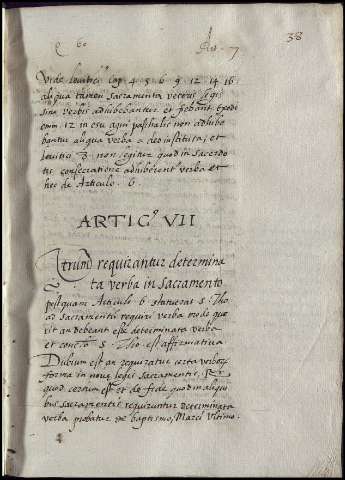 q 60 Ar. 7 38
Vide levitici cap. 4. 5. 6. 9. 12. 14. 16.
aliqua tamen sacramenta veteris legis
sine verbis adhibebantur et fiebant. exodi
enim. 12. in esu agni paschalis non adhibe
bantur aliqua verba a deo instituta, et
levitici 8. non legitur quod in sacerdo
tis consecratione adhiberent verba et
hec de Articulo. 6.
ARTIC.º VII
Utrum requirantur determina
ta verba in sacramento
postquam Articulo 6 statuerat S. Tho.
ad sacramenta requiri verba modo que
rit an debeant esse determinata verba
et S. Tho. est affirmativa
Dubium est an requiratur certa verborum
forma in nove legis sacramentis, Et
quod certum est et de fide quod in aliqui
bus sacramentis requiruntur determinata
verba probatur de baptismo, Marci Vltimo.